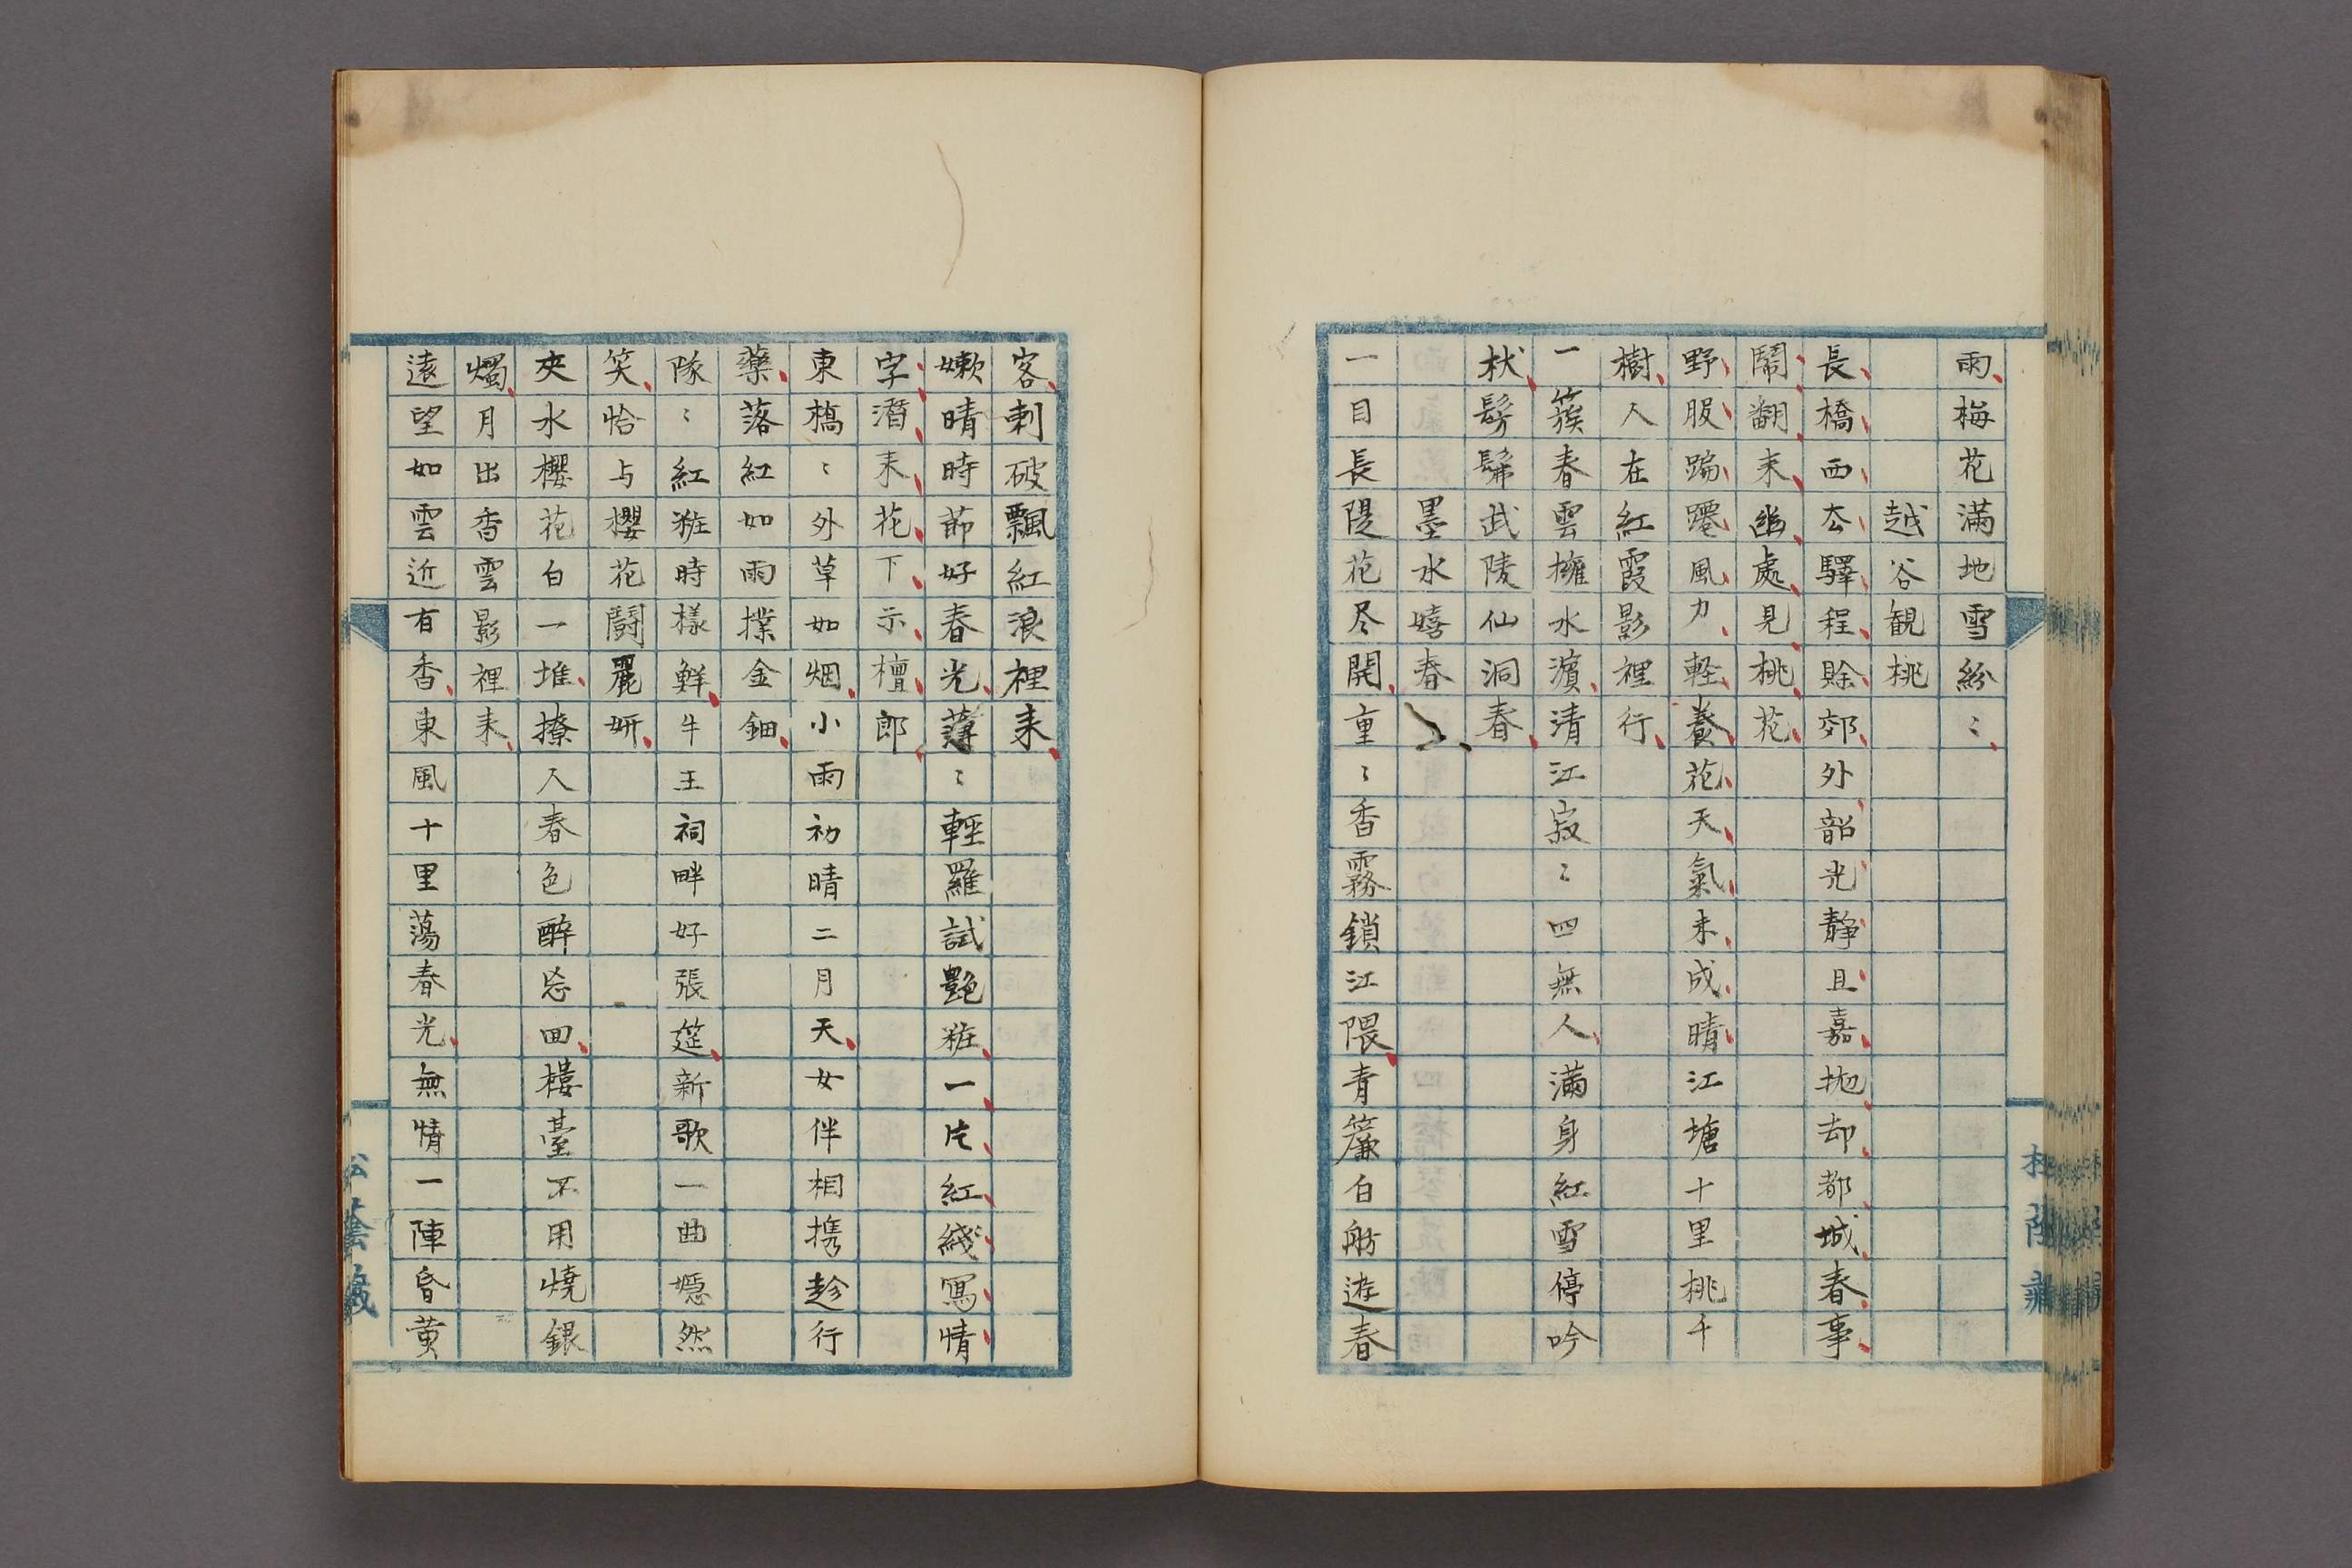 雨梅花滿地雪紛〻
越谷観桃
長橋西去驛程賖郊外韶光静且嘉抛却都城春事
鬧翻来幽處見桃花
野服蹁躚風力軽養花天氣未成晴江塘十里桃千
樹人在紅霞影裡行
一簇春雲擁水濵清江寂〻四無人滿身紅雪停吟
杖髣髴武陵仙洞春
墨水嬉春
一目長隄花尽開重〻香霧鎖江隈青簾白舫遊春
客刺破飄紅浪裡来
嫩晴時節好春光薄〻輕羅試艶粧一片紅綾寫情
字潛来花下示檀郎
東橋〻外草如烟小雨初晴二月天女伴相携趁行
藥落紅如雨撲金鈿
隊〻紅粧時樣鮮牛王祠畔好張筵新歌一曲嫣然
笑恰与櫻花鬪麗妍
夾水櫻花白一堆撩人春色醉忘回樓臺不用燒銀
燭月出香雲影裡来
遠望如雲近有香東風十里蕩春光無情一陣昏黄